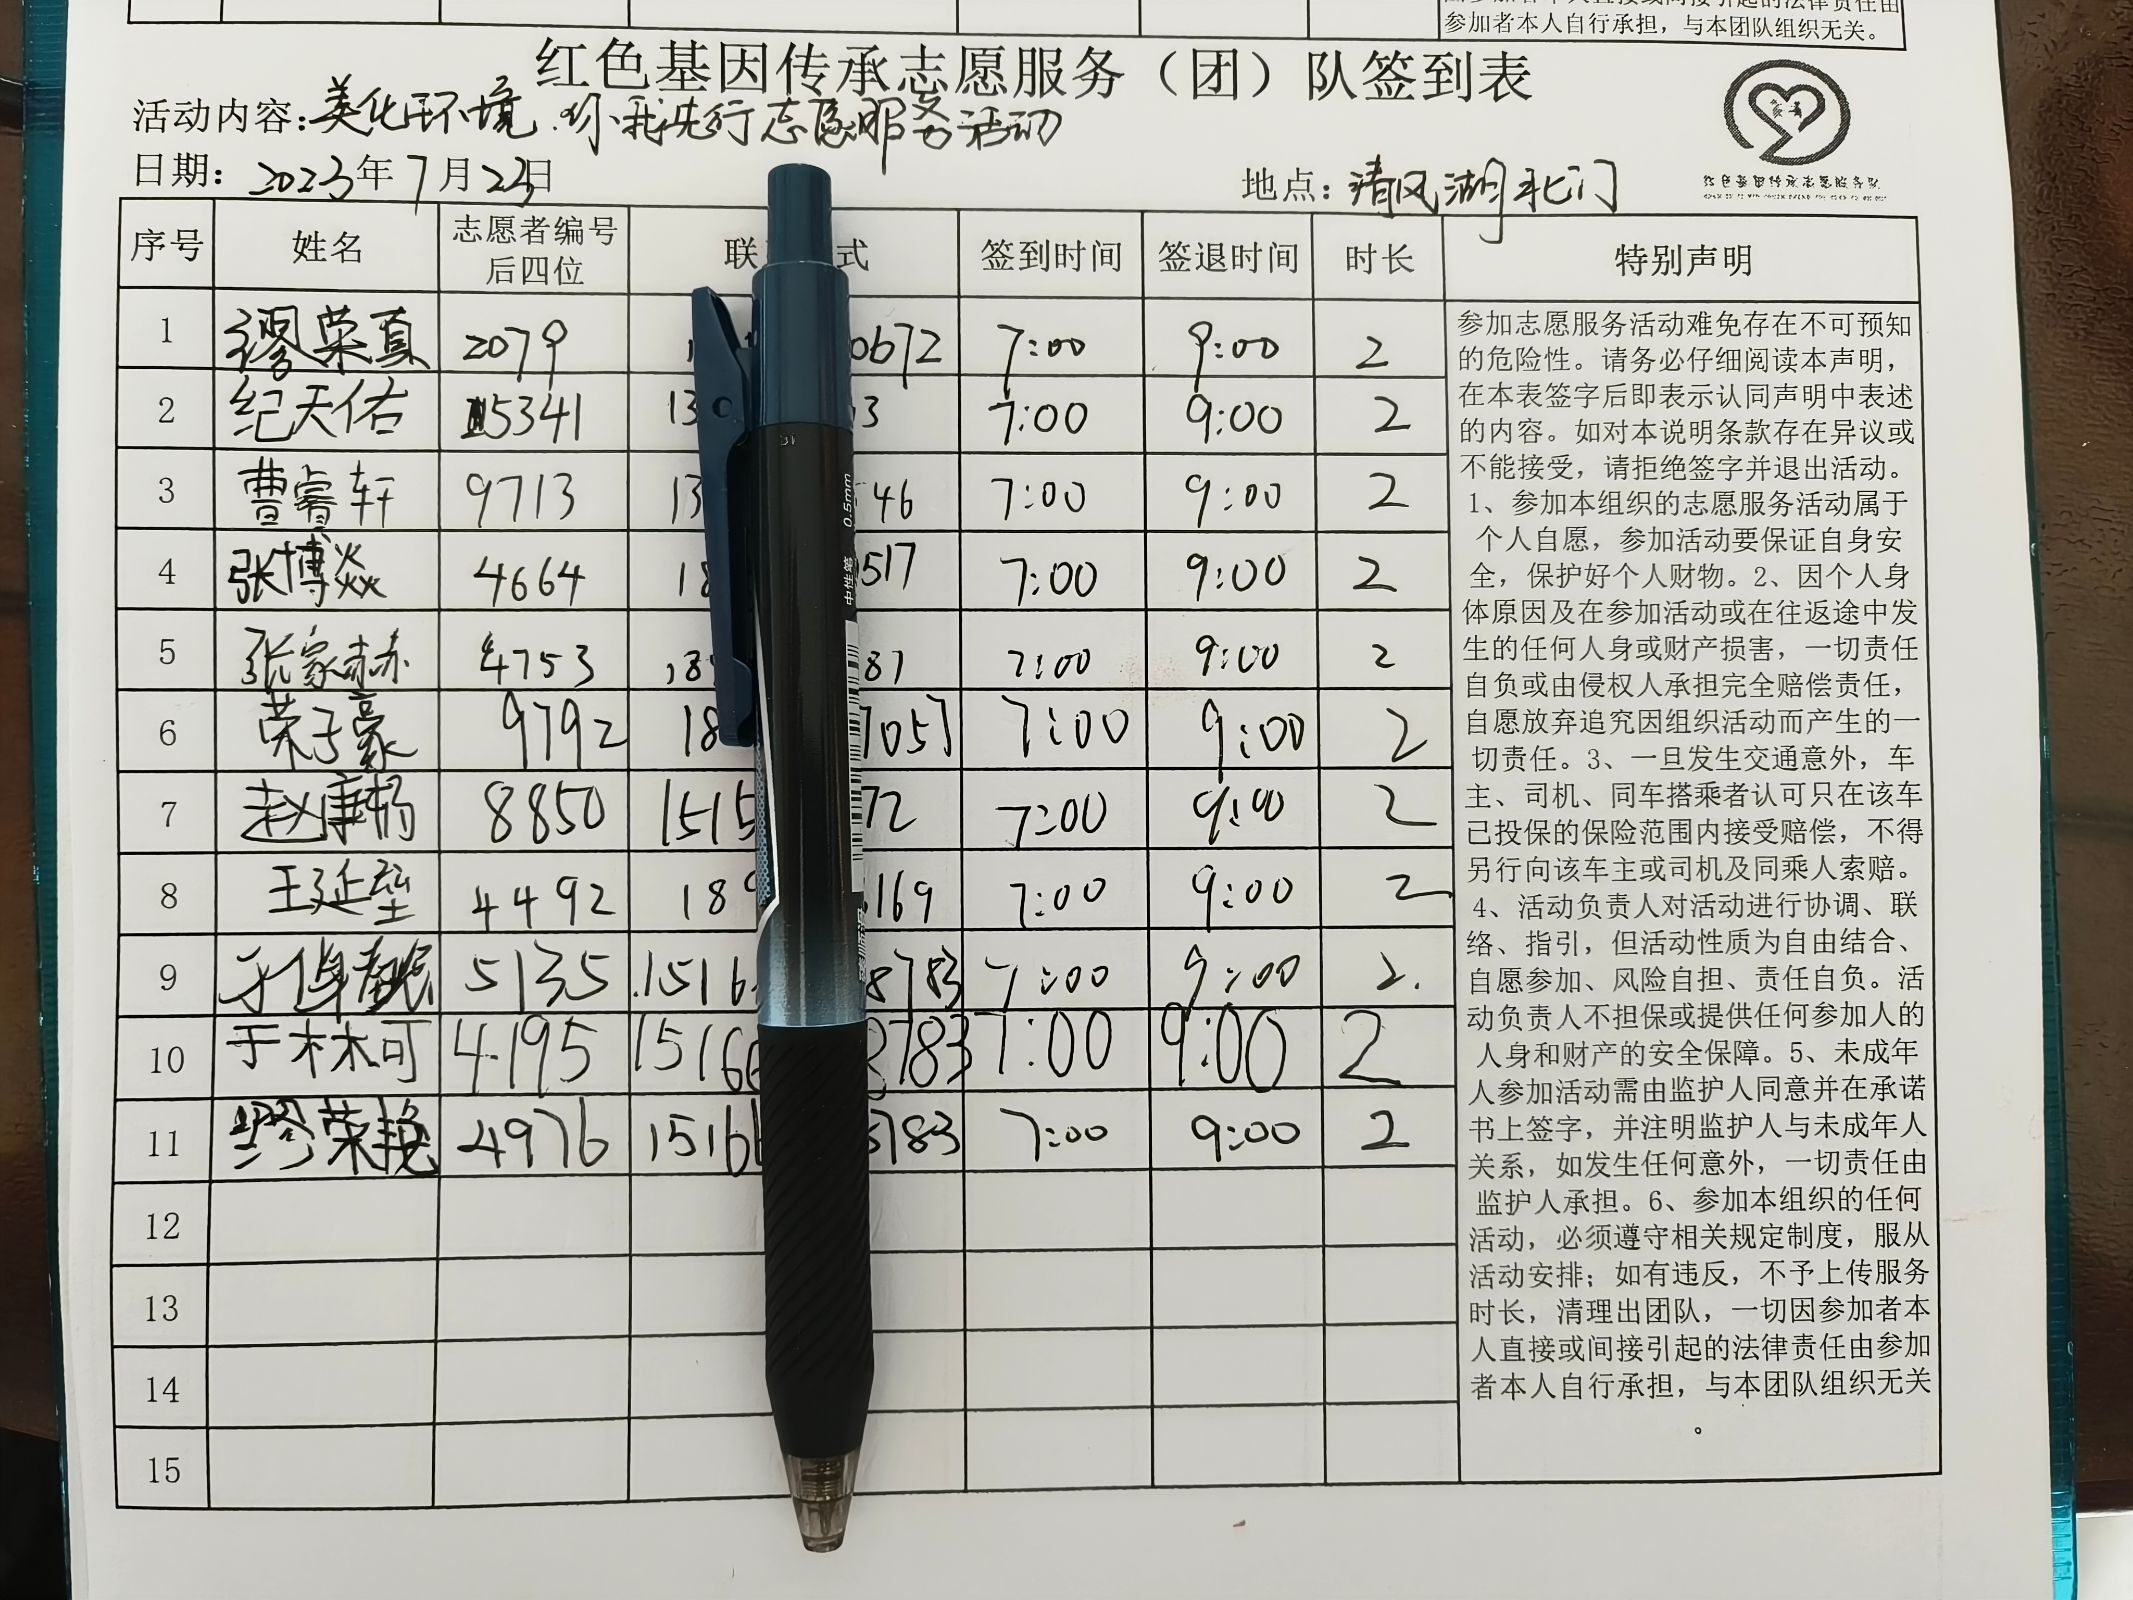 参加者本人自行承担，与本团队组织无关。
红色基因传承志愿服务（团）队签到表
活动内容：美化环境.你我先行志愿服务活动
日期：2023年7月23日
地点：清风湖北门
序号 姓名 志愿者编号后四位 联 式 签到时间 签退时间 时长 特别声明
1 缪荣真 2079 0672 7:00 9:00 2
2 纪天佑 5341 13 3 7:00 9:00 2
3 曹睿轩 9713 13 46 7:00 9:00 2
4 张博焱 4664 18 517 7:00 9:00 2
5 张家赫 4753 18 87 7:00 9:00 2
6 荣子豪 9792 18 7057 7:00 9:00 2
7 赵康杨 8850 1515 72 7:00 9:00 2
8 王延堃 4492 189 169 7:00 9:00 2
9 5135 1516 8783 7:00 9:00 2.
10 于林可 4195 15166 8783 7:00 9:00 2
11 缪荣艳 4976 15166 8783 7:00 9:00 2
12
13
14
15
参加志愿服务活动难免存在不可预知
的危险性。请务必仔细阅读本声明，
在本表签字后即表示认同声明中表述
的内容。如对本说明条款存在异议或
不能接受，请拒绝签字并退出活动。
1、参加本组织的志愿服务活动属于
个人自愿，参加活动要保证自身安
全，保护好个人财物。2、因个人身
体原因及在参加活动或在往返途中发
生的任何人身或财产损害，一切责任
自负或由侵权人承担完全赔偿责任，
自愿放弃追究因组织活动而产生的一
切责任。3、一旦发生交通意外，车
主、司机、同车搭乘者认可只在该车
已投保的保险范围内接受赔偿，不得
另行向该车主或司机及同乘人索赔。
4、活动负责人对活动进行协调、联
络、指引，但活动性质为自由结合、
自愿参加、风险自担、责任自负。活
动负责人不担保或提供任何参加人的
人身和财产的安全保障。5、未成年
人参加活动需由监护人同意并在承诺
书上签字，并注明监护人与未成年人
关系，如发生任何意外，一切责任由
监护人承担。6、参加本组织的任何
活动，必须遵守相关规定制度，服从
活动安排；如有违反，不予上传服务
时长，清理出团队，一切因参加者本
人直接或间接引起的法律责任由参加
者本人自行承担，与本团队组织无关
。
0.5mm
中性笔